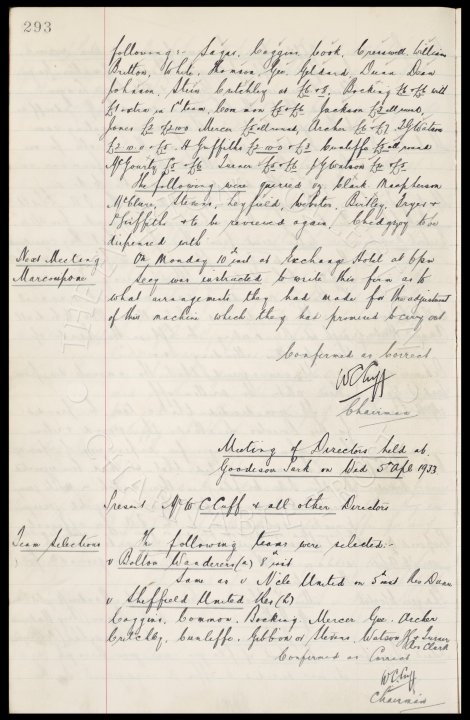 293
following :- Sagar, Coggins, Cook, Cresswell, William
Britton, White, Thomson, Gee, Geldard, Dunn, Dean
Johnson, Stein Critchley at £8 & 6, Bocking £6 £6 with
£1 extra in 1st team, Common £5 & £6 Jackson £3 all round,
Jones £2 Mercer £5 all round, Archer £6 £7 T G Watson
H Griffiths £2.10.0 & £3 Cunliffe £5 all round
McGourty £5 £6 Turner £5 & £6 J G Watson £6 & £5
The following were queried eg Clark Macpherson
McClure, Stevens, Leyfield, Webster, Birtley,
Griffiths & to be reviewed again. Chedgzoy to be
dispensed with
Next Meeting On Monday 10th inst at Exchange Hotel at 6pm
Marconpone Secy was instructed to write this firm as to
what arrangements they had made for the adjustment
of this machine which they had promised to carry out
Confirmed as Correct
W C Cuff
Chairman
Meeting of Directors held at
Goodison Park on Wed 5th Apl 1933
Present Mr W C Cuff & all other Directors
Team Selections The following teams were selected :-
v Bolton Wanderers (a) 8th inst
Same as v N'cle United on 5th inst Res Dunn
v Sheffield United Res (h)
Coggins, Common, Bocking, Mercer Gee, Archer
Critchley, Cunliffe, Gibbon or Stevens, Watson J G & Turner
Res Clark
Confirmed as Correct
W C Cuff
Chairman